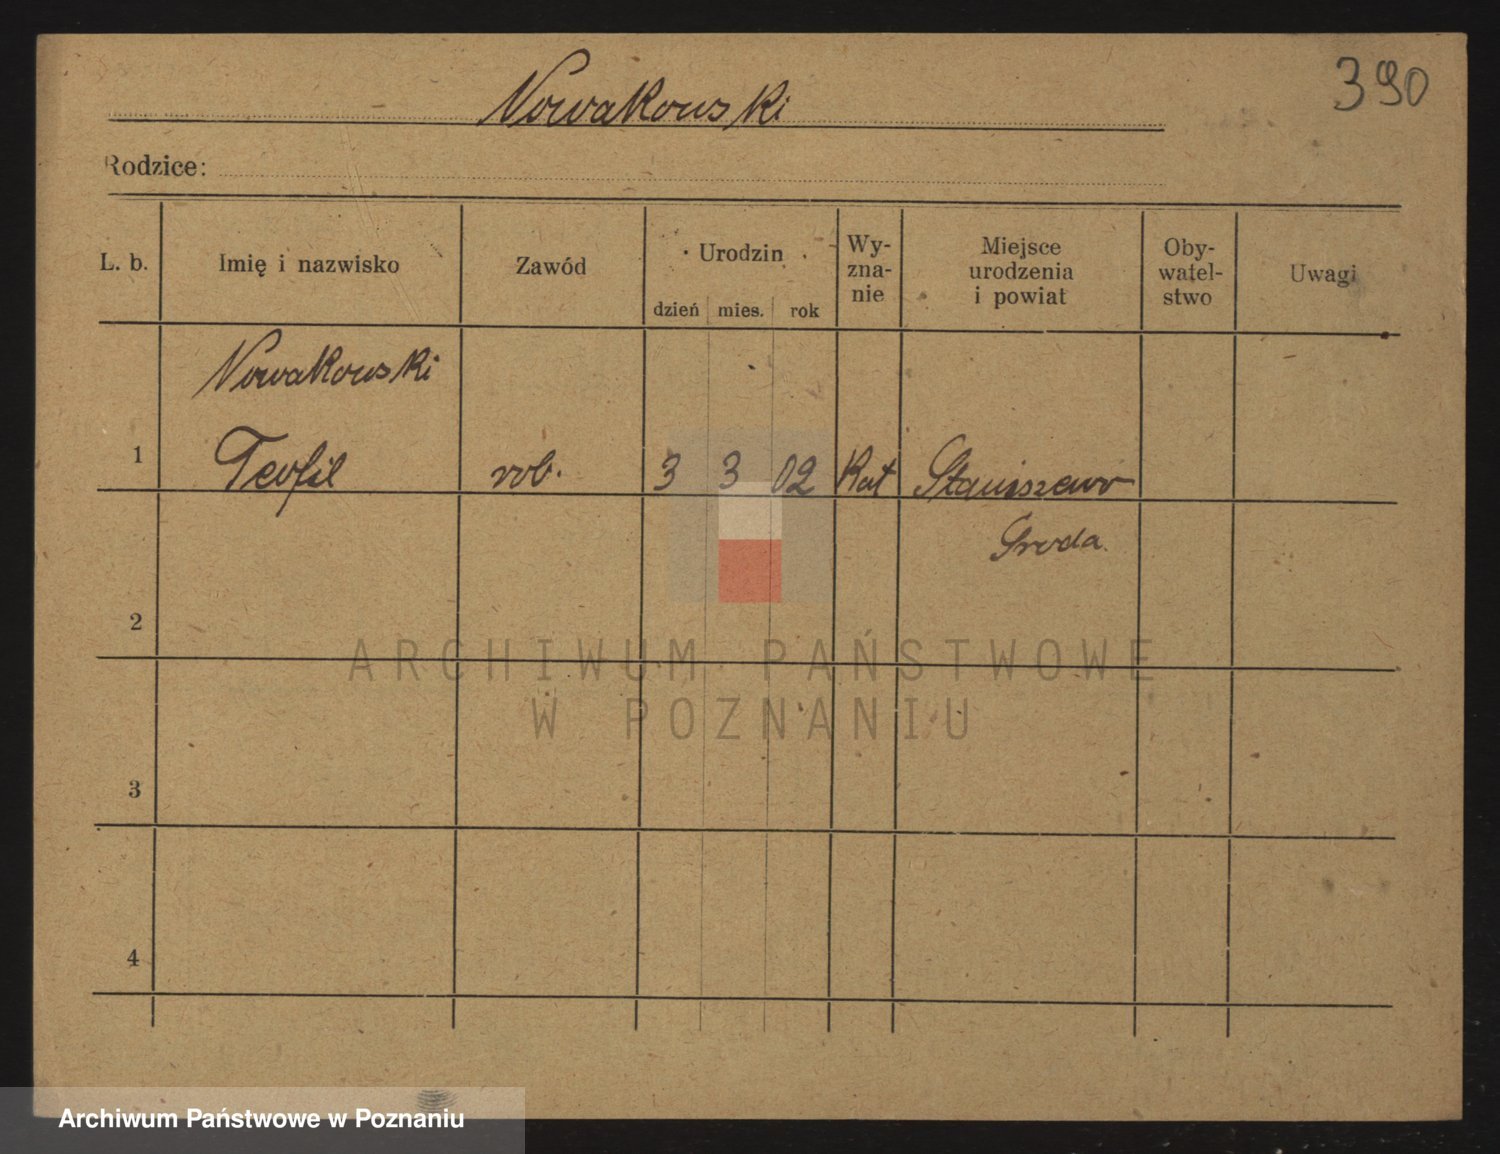 390
Nowakowski
Rodzice:
L. b. Imię i nazwisko Zawód Urodzin Wy- Miejsce Oby- Uwagi
zna- urodzenia watel-
nie i powiat stwo
dzień mies. rok
Nowakowski
1 Teofil rob. 3 3 02 Kat Staniszewo
Sroda
2
3
4
ARCHIWUM PAŃSTWOWE
W POZNANIU
Archiwum Państwowe w Poznaniu